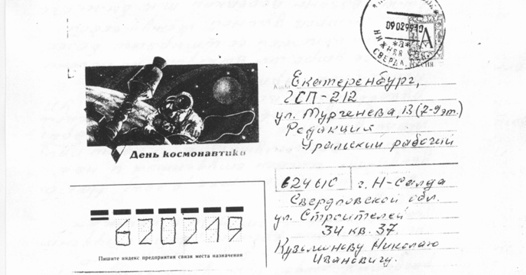 09 02 99 10
НИЖНЯЯ С
СВЕРДЛ
А
РОССИЯ
День космонавтики
Екатеренбург,
ГСП-212
ул. Тургенева, 13 (2-9 эт.)
Редакций
Уральский рабочий
г. Н-Салда
Свердловской обл.
ул. Строителей
34 кв. 37
Кузьминову Николаю
Ивановичу.
620219
Пишите индекс предприятия связи места назначения